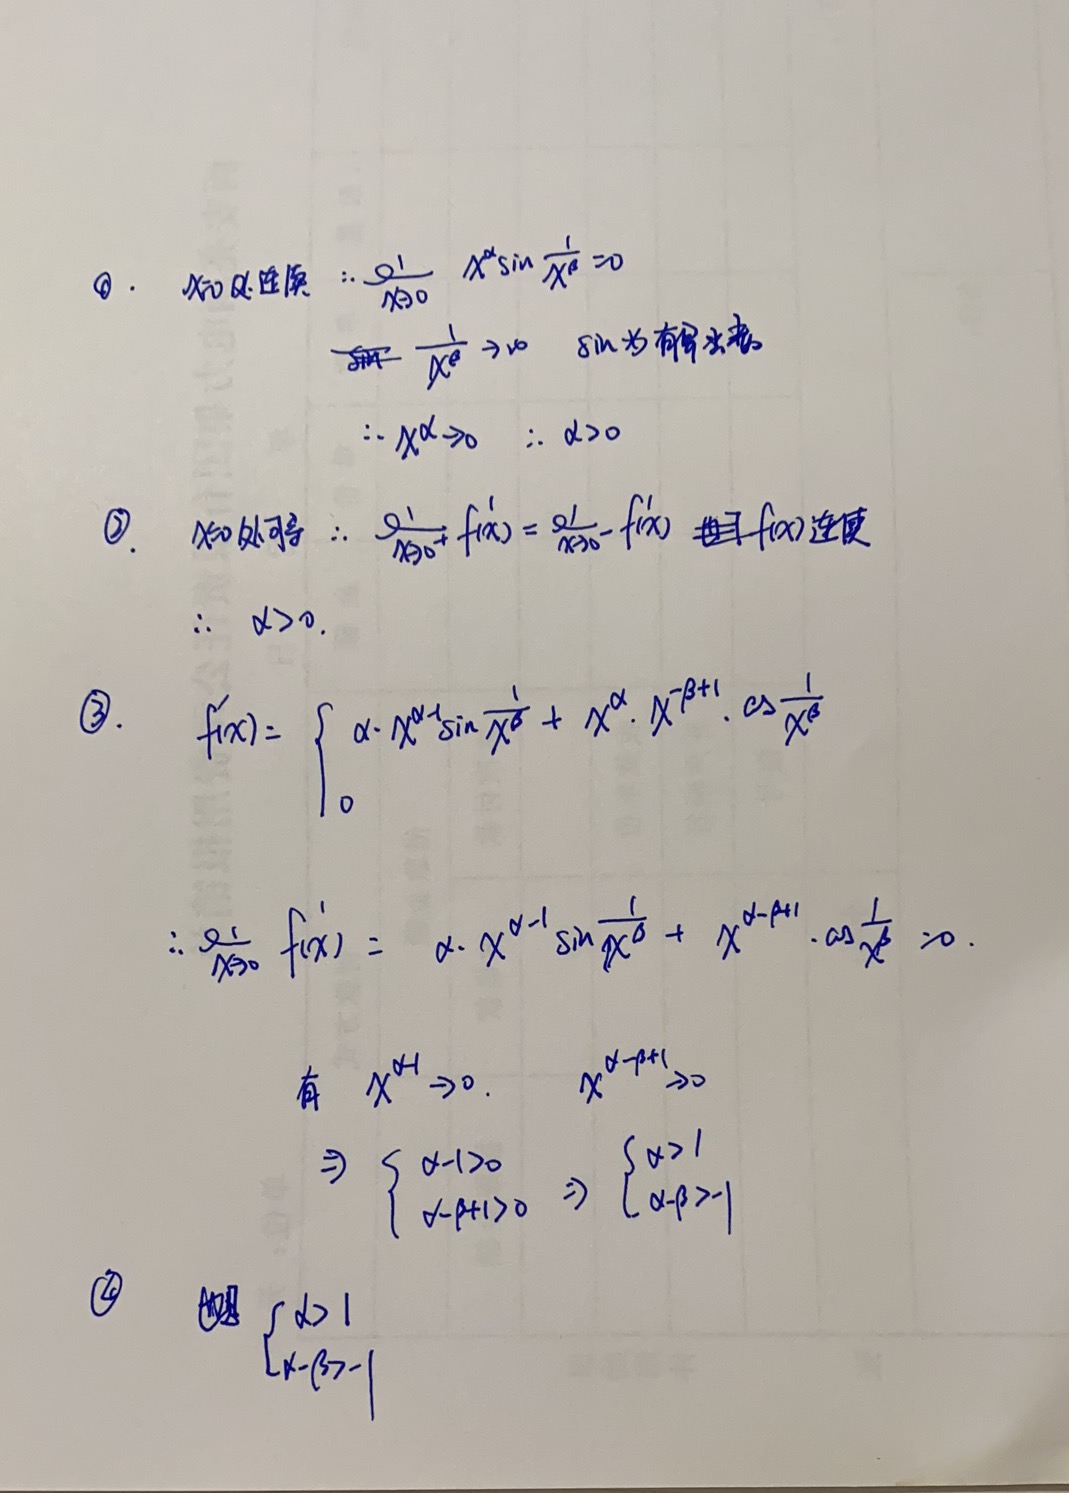 ①. x=0处连续 ∴ lim x→0 x^α sin 1/x^β =0
1/x^β →∞ sin为有界函数
∴ x^α →0 ∴ α>0
②. x=0处可导 ∴ lim x→0⁺ f'(x) = lim x→0⁻ f'(x) f(x)连续
∴ α>0.
③. f'(x) = { α·x^(α-1) sin 1/x^β + x^α · x^(-β+1) · cos 1/x^β
0
∴ lim x→0 f'(x) = α· x^(α-1) sin 1/x^β + x^(α-β+1) · cos 1/x^β =0.
有 x^(α-1) →0. x^(α-β+1) →0
⇒ { α-1>0 ⇒ { α>1
α-β+1>0 α-β>-1
④ { α>1
α-β>-1